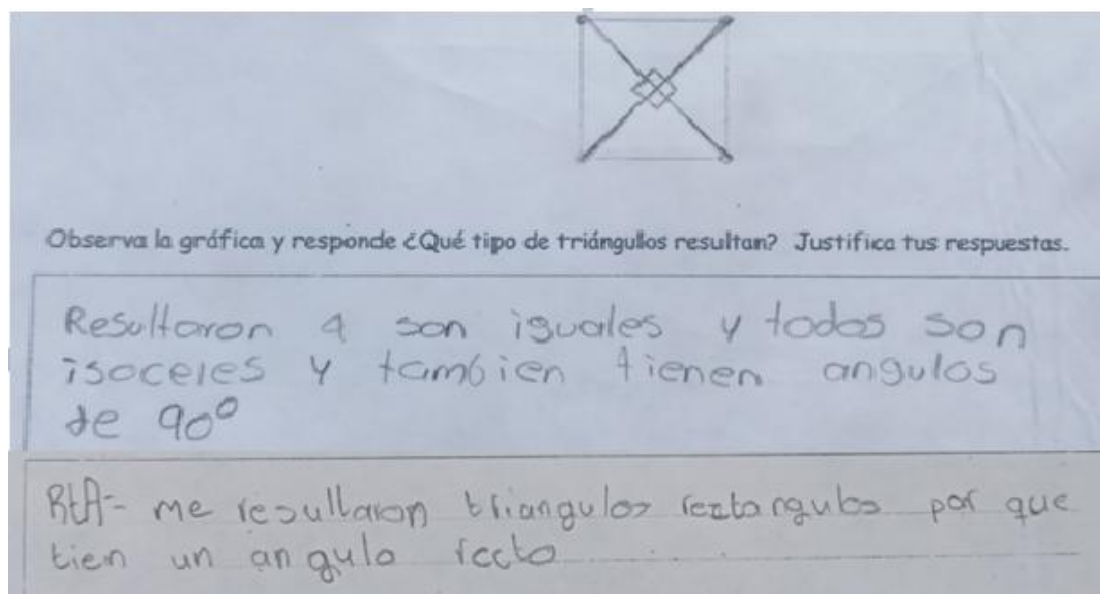 Observa la gráfica y responde ¿Qué tipo de triángulos resultan? Justifica tus respuestas.
Resultaron 4 son iguales y todos son
isoceles y tambien tienen angulos
de 90°
RtA- me resultaron triangulos rectangulos por que
tien un angulo recto